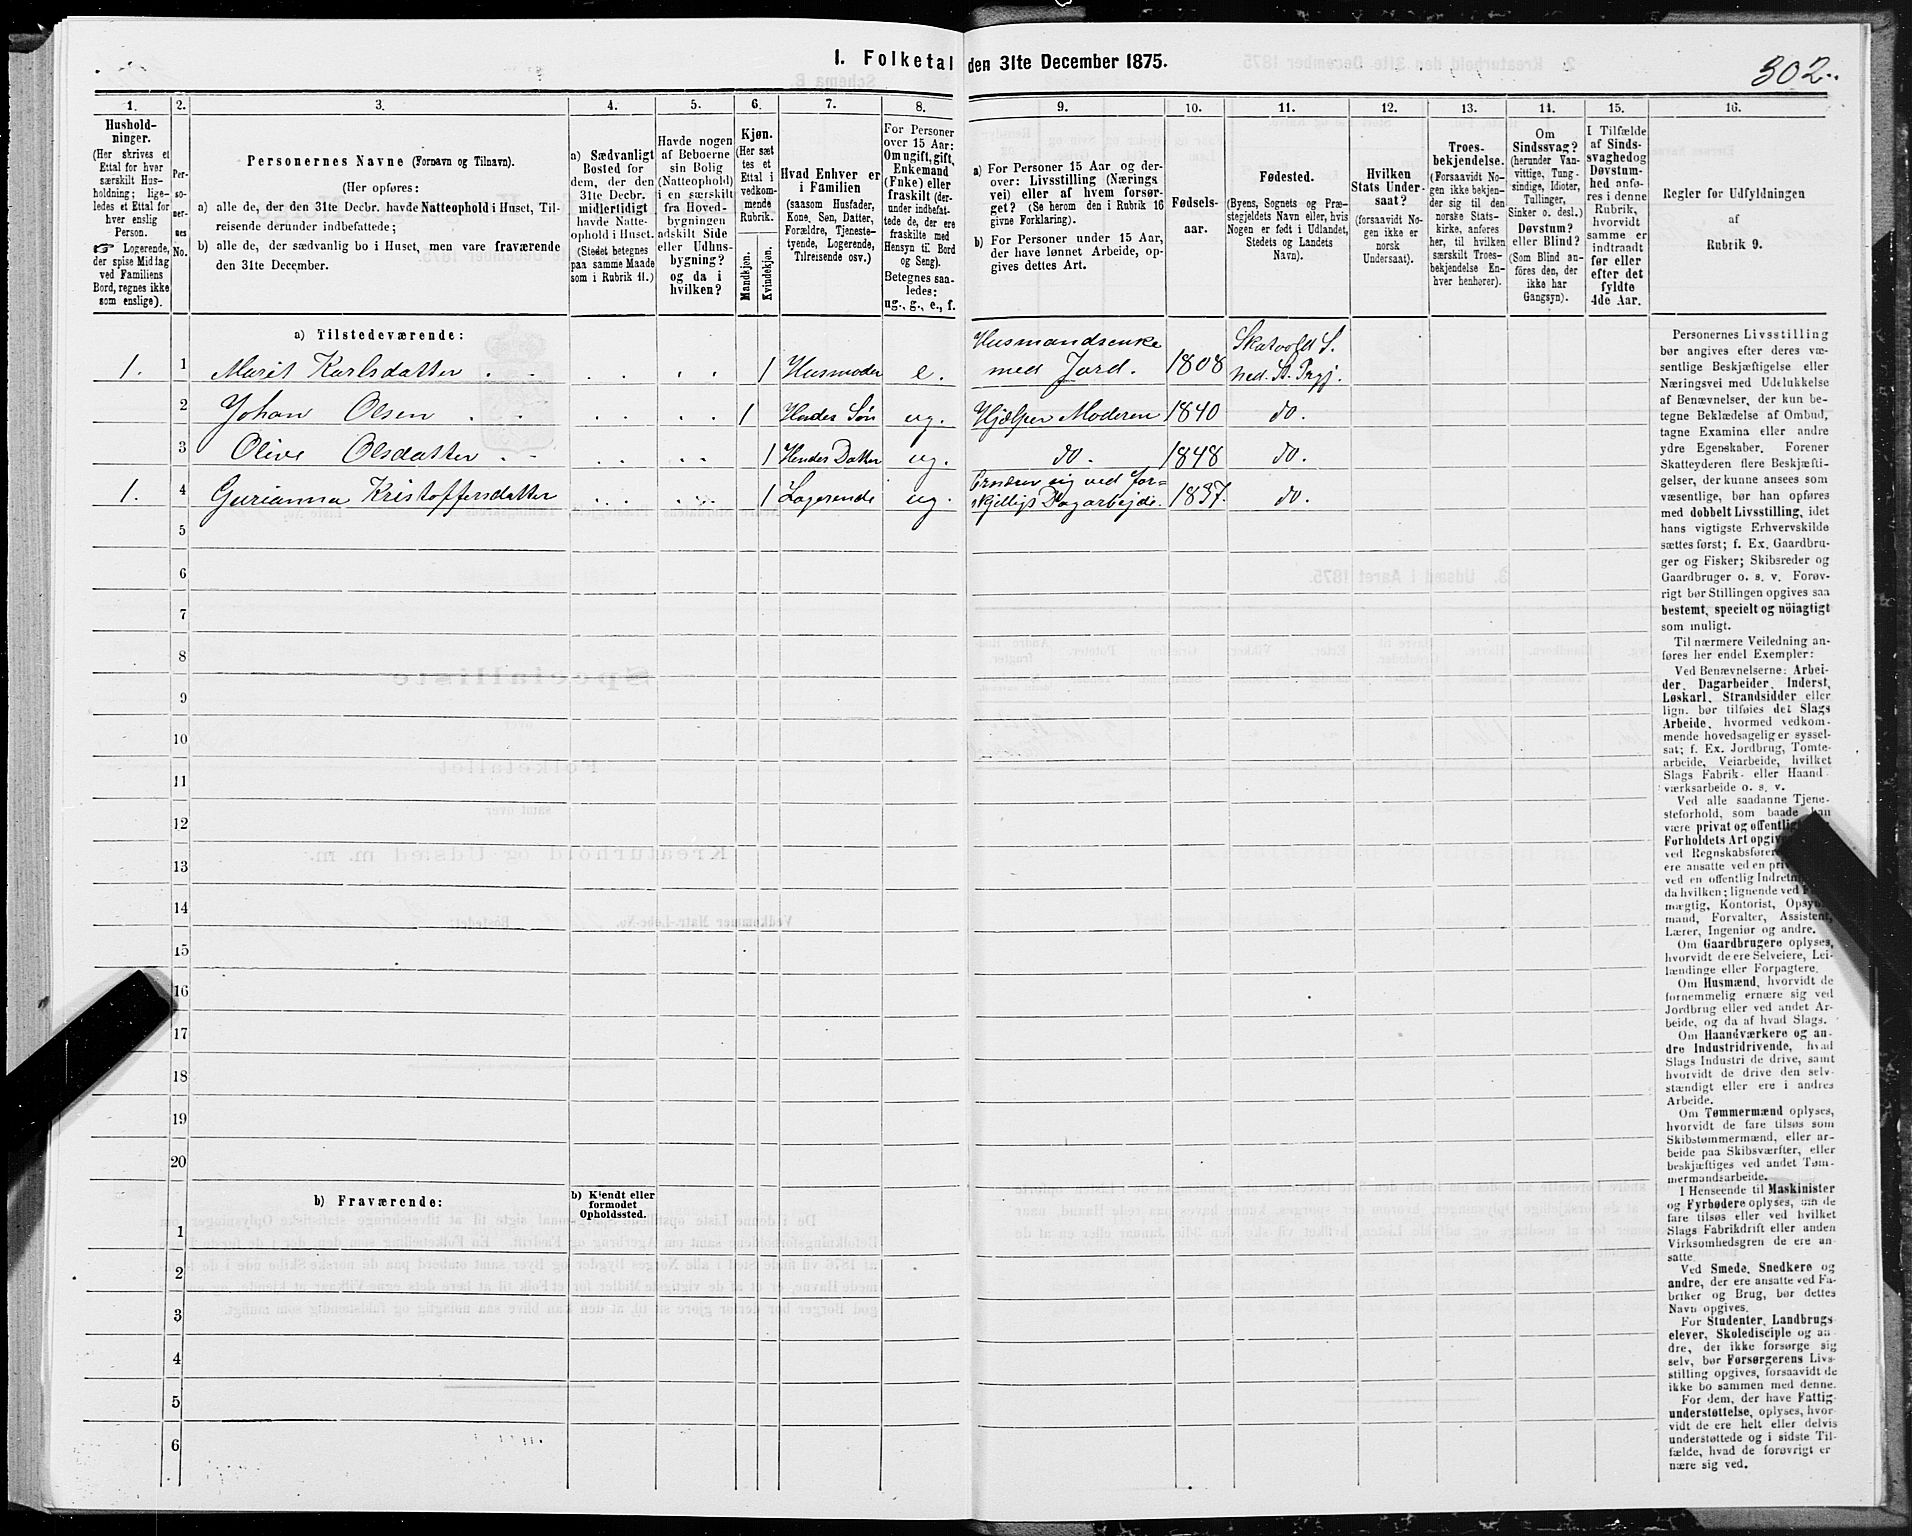 1. Folketal den 31te December 1875.
302.
1.
2.
3.
4.
5.
6.
7.
8.
9.
10.
11.
12.
13.
14.
15.
16.
Hushold-
ninger.
(Her skrives et
Ettal for hver
særskilt Hus-
holdning; lige-
ledes et Ettal for
hver enslig
Person.
☞ Logerende,
der spise Middag
ved Familiens
Bord, regnes ikke
som enslige).
Per-
so-
ner-
nes
No.
Personernes Navne (Fornavn og Tilnavn).
(Her opføres:
a) alle de, der den 31te Decbr. havde Natteophold i Huset, Til-
reisende derunder indbefattede;
b) alle de, der sædvanlig bo i Huset, men vare fraværende
den 31te December.
a) Sædvanligt
Bosted for
dem, der den
31te Decbr.
midlertidigt
havde Natte-
ophold i Huset.
(Stedet betegnes
paa samme Maade
som i Rubrik 11.)
Havde nogen
af Beboerne
sin Bolig
(Natteophold)
i en særskilt
fra Hoved-
bygningen
adskilt Side
eller Udhus-
bygning?
og da i
hvilken?
Kjøn.
(Her sæt
tes et
Ettal i
vedkom-
mende
Rubrik.
Mandkjøn.
Kvindekjøn.
Hvad Enhver er
i Familien
(saasom Husfader,
Kone, Søn, Datter,
Forældre, Tjeneste-
tyende, Logerende,
Tilreisende osv.)
For Personer
over 15 Aar:
Om ugift, gift,
Enkemand
(Enke) eller
fraskilt (der-
under indbefat-
tede de, der ere
fraskilte med
Hensyn til Bord
og Seng).
Betegnes saa-
ledes:
ug., g., e., f.
a) For Personer 15 Aar og der-
over: Livsstilling (Nærings
vei) eller af hvem forsør-
get? (Se herom den i Rubrik 16
givne Forklaring).
b) For Personer under 15 Aar,
der have lønnet Arbeide, op-
gives dettes Art.
Fødsels-
aar.
Fødested.
(Byens, Sognets og Præ-
stegjeldets Navn eller, hvis
Nogen er født i Udlandet,
Stedets og Landets
Navn).
Hvilken
Stats Under-
saat?
(forsaavidt No-
gen ikke er
norsk
Undersaat).
Troes-
bekjendelse.
(Forsaavidt No-
gen ikke bekjen-
der sig til den
norske Stats-
kirke, anføres
her, til hvilken
særskilt Troes-
bekjendelse En-
hver henhører).
Om
Sindssvag?
(herunder Van-
vittige, Tung-
sindige, Idioter,
Tullinger,
Sinker o. desl.)
Døvstum?
eller Blind?
(Som Blind an-
føres den, der
ikke har
Gangsyn).
I Tilfælde
af Sinds-
svaghed og
Døvstum-
hed anfø-
res i denne
Rubrik,
hvorvidt
samme er
indtraadt
før eller
efter det
fyldte
4de Aar.
Regler for Udfyldningen
af
Rubrik 9.
a) Tilstedeværende:
1. 1 Marit Karlsdatter 1 Husmoder e. Husmandsenke med Jord. 1808 Skatvold S. Ned. St. Prgj.
2 Johan Olsen 1 Hendes Søn ug. Hjælper Moderen 1840 do.
3 Olive Olsdatter 1 Hendes Datter ug. do. 1848 do.
1. 4 Gurianna Kristoffersdatter 1 Logerende ug. Ernærer sig ved for= skjelligt Dagarbejde. 1837. do.
5
6
7
8
9
10
11
12
13
14
15
16
17
18
19
20
b) Fraværende:
b) Kjendt eller
formodet
Opholdssted.
1
2
3
4
5
6
Personernes Livsstilling
bør angives efter deres væ-
sentlige Beskjæftigelse eller
Næringsvei med Udelukkelse
af Benævnelser, der kun be-
tegne Beklædelse af Ombud,
tagne Examina eller andre
ydre Egenskaber. Forener
Skatteyderen flere Beskjæfti-
gelser, der kunne ansees som
væsentlige, bør han opføres
med dobbelt Livsstilling, idet
hans vigtigste Erhvervskilde
sættes først; f. Ex. Gaardbru-
ger og Fisker; Skibsreder og
Gaardbruger o. s. v. Forøv-
rigt bør Stillingen opgives saa
bestemt, specielt og nöiagtigt
som muligt.
Til nærmere Veiledning an-
føres her endel Exempler:
Ved Benævnelserne: Arbei-
der, Dagarbeider, Inderst,
Løskarl, Strandsidder eller
lign. bør tilføies det Slags
Arbeide, hvormed vedkom-
mende hovedsagelig er syssel-
sat; f. Ex. Jordbrug, Tomte-
arbeide, Veiarbeide, hvilket
Slags Fabrik- eller Haand-
værksarbeide o. s. v.
Ved alle saadanne Tjene-
steforhold, som baade kan
være privat og offentligt
Forholdets Art opgiv
ved Regnskabsføre
ere ansatte ved en pri
ved en offentlig Indretn
da hvilken; lignende ved F
mægtig, Kontorist, Opsyn
mand, Forvalter, Assistent,
Lærer, Ingeniør og andre.
Om Gaardbrugere oplyses,
hvorvidt de ere Selveiere, Lei-
lændinge eller Forpagtere.
Om Husmænd, hvorvidt de
fornemmelig ernære sig ved
Jordbrug eller ved andet Ar-
beide, og da af hvad Slags.
Om Haandværkere og an-
dre Industridrivende, hvad
Slags Industri de drive, samt
hvorvidt de drive den selv-
stændigt eller ere i andres
Arbeide.
Om Tømmermænd oplyses,
hvorvidt de fare tilsøs som
Skibstømmermænd, eller ar-
beide paa Skibsværfter, eller
beskjæftiges ved andet Tøm-
mermandsarbeide.
I Henseende til Maskinister
og Fyrbødere oplyses, om de
fare tilsøs eller ved hvilket
Slags Fabrikdrift eller anden
Virksomhedsgren de ere an-
satte
Ved Smede, Snedkere og
andre, der ere ansatte ved Fa-
briker og Brug, bør dettes
Navn opgives.
For Studenter, Landbrugs-
elever, Skoledisciple og an-
dre, der ikke forsørge sig
selv, bør Forsørgerens Livs-
stilling opgives, forsaavidt de
ikke bo sammen med denne.
For dem, der have Fattig-
understøttelse, oplyses, hvor-
vidt de ere helt eller delvis
understøttede og i sidste Til-
fælde, hvad de forøvrigt er
nære sig ved.